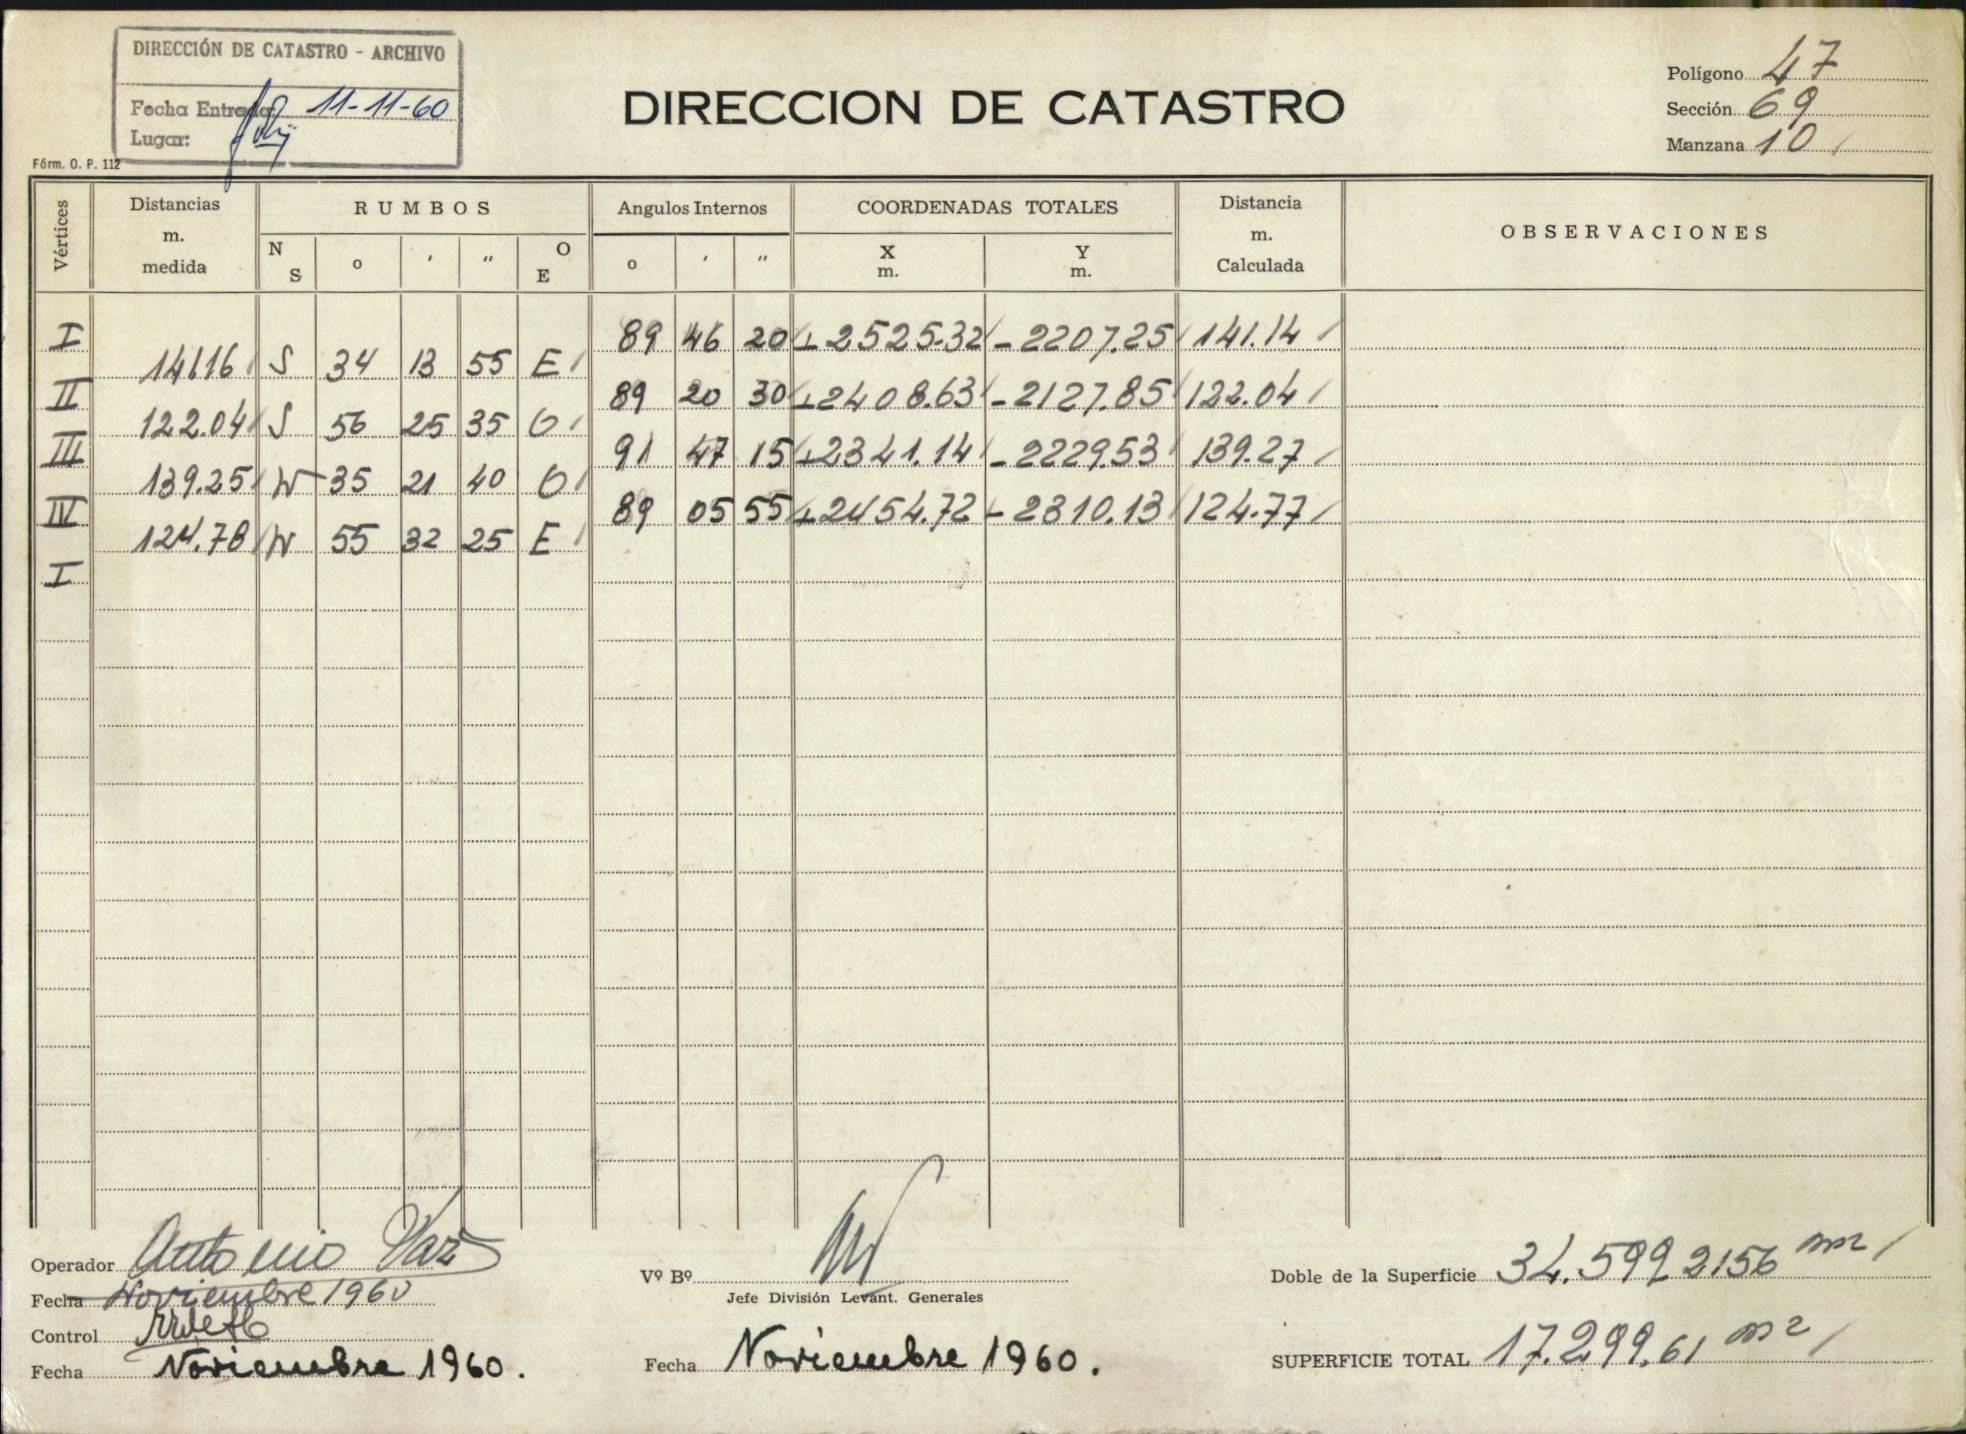 DIRECCIÓN DE CATASTRO - ARCHIVO
Fecha Entrada: 11-11-60
Lugar:
Fórm. O. P. 112
DIRECCION DE CATASTRO
Polígono 47
Sección 69
Manzana 10
Vértices
Distancias m. medida
RUMBOS
N S o ′ ″ O E
Angulos Internos
o ′ ″
COORDENADAS TOTALES
X m. Y m.
Distancia m. Calculada
OBSERVACIONES
I 89 46 20 +2525.32 -2207.25 141.14
141.16 S 34 13 55 E
II 89 20 30 +2408.63 -2127.85 122.04
122.04 S 56 25 35 O
III 91 47 15 +2341.14 -2229.53 139.27
139.25 N 35 21 40 O
IV 89 05 55 +2454.72 -2310.13 124.77
124.78 N 55 32 25 E
I
Operador Antonio Vaz
Fecha Noviembre 1960
Control
Fecha Noviembre 1960.
Vº Bº
Jefe División Levant. Generales
Fecha Noviembre 1960.
Doble de la Superficie 34.599 2156 m2
SUPERFICIE TOTAL 17.299.61 m2